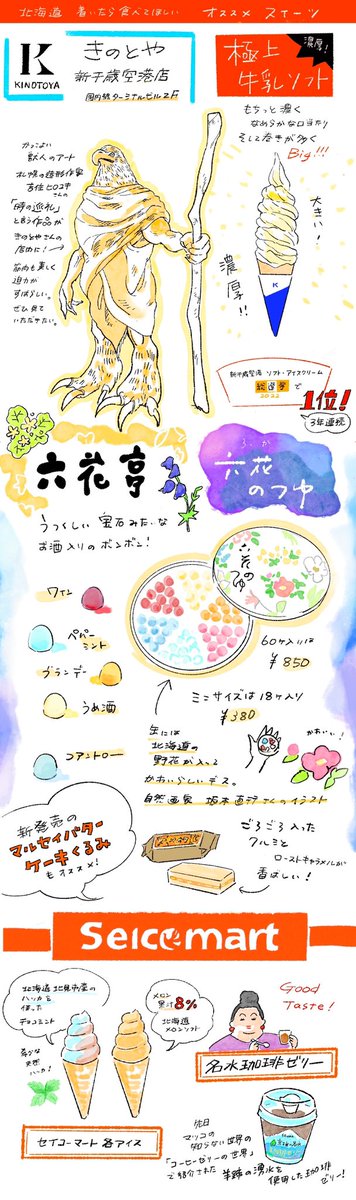 北海道 着いたら食べてほしい オススメ スイーツ
K
KINOTOYA
きのとや
新千歳空港店
国内線ターミナルビル2F
濃厚!
極上
牛乳ソフト
もちっと濃く
なめらかな口当たり
そして巻きが多く
Big!!!
大きい!
濃厚!!
K
かっこよい
獣人のアート
札幌の造形作家
さんの
「時の巡礼」
と言う作品が
きのとやさんの
店内に!
筋肉も美しく
迫力が
すばらしい。
ぜひ見て
いただきたい。
新千歳空港 ソフト・アイスクリーム
総選挙で
2022
1位!
3年連続
六花亭
ろっか
六花
のつゆ
うつくしい宝石みたいな
お酒入りのボンボン!
ワイン
ペパー
ミント
ブランデー
うめ酒
コアントロー
六花の
つゆ
60ヶ入りは
¥850
ミニサイズは18ヶ入り
¥380
缶には
北海道の
野花が入って
かわいらしいデス。
自然画家 坂本直行さんのイラスト
かわいい!
新発売の
マルセイバター
ケーキくるみ
もオススメ!
ごろごろ入った
クルミと
ローストキャラメルが
香ばしい!
Seicomart
北海道 北見産の
ハッカを
使った
チョコミント
爽やかな
天然
ハッカ!
メロン
果汁8%
北海道
メロンソフト
セイコーマート 各アイス
Good
Taste!
名水珈琲ゼリー
先日
マツコの
知らない世界の
「コーヒーゼリーの世界」
で紹介された
羊蹄の湧水を
使用した珈琲
ゼリー!